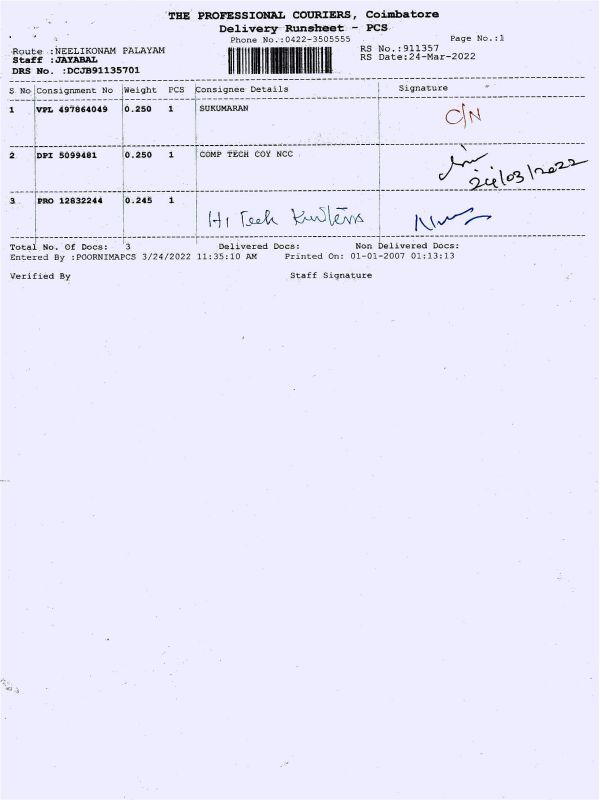 THE PROFESSIONAL COURIERS, Coimbatore
Delivery Runsheet - PCS
Phone No.:0422-3505555 Page No.:1
Route :NEELIKONAM PALAYAM RS No.:911357
Staff :JAYABAL RS Date:24-Mar-2022
DRS No. :DCJB91135701
S No Consignment No Weight PCS Consignee Details Signature
1 VPL 497864049 0.250 1 SUKUMARAN C/N
2 DPI 5099481 0.250 1 COMP TECH COY NCC
24/03/2022
3 PRO 12832244 0.245 1
Hi Teck
Total No. Of Docs: 3 Delivered Docs: Non Delivered Docs:
Entered By :POORNIMAPCS 3/24/2022 11:35:10 AM Printed On: 01-01-2007 01:13:13
Verified By Staff Signature